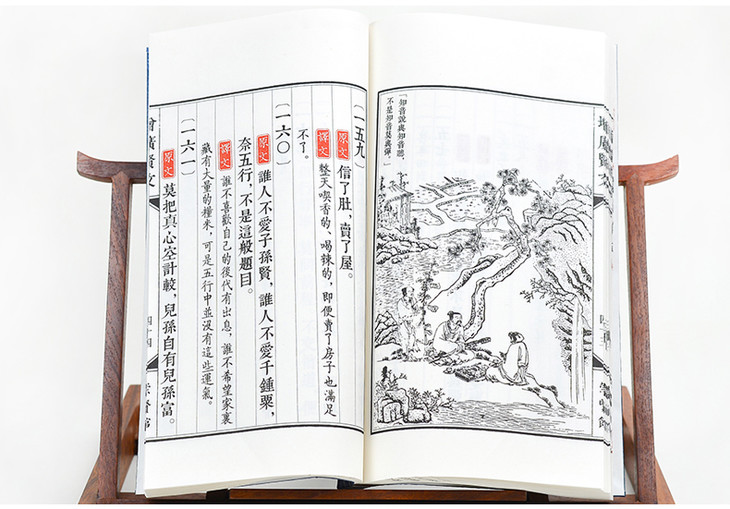 增廣賢文
「知音說與知音聽,
不是知音莫與彈。」
〔一五九〕
原文 信了肚,賣了屋。
譯文 整天喫香的、喝辣的,即便賣了房子也滿足
不了。
〔一六〇〕
原文 誰人不愛子孫賢,誰人不愛千鍾粟,
奈五行,不是這般題目。
譯文 誰不喜歡自己的後代有出息,誰不希望家裏
藏有大量的糧米,可是五行中並沒有這些運氣。
〔一六一〕
原文 莫把真心空計較,兒孫自有兒孫富。
增廣賢文 四十四 崇賢館